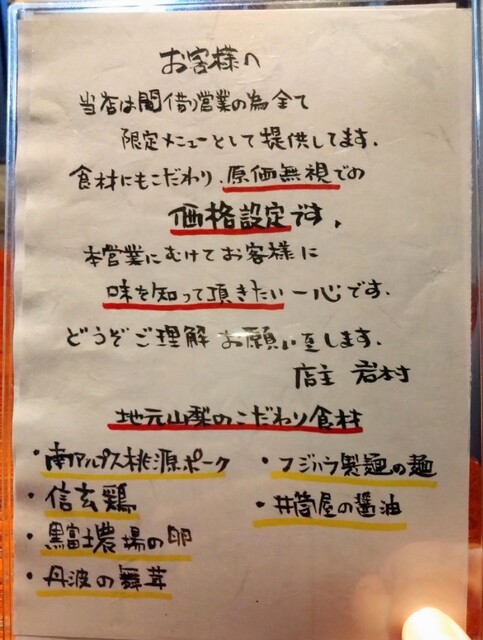 お客様へ
当店は間借り営業の為全て
限定メニューとして提供してます.
食材にもこだわり、原価無視での
価格設定です。
本営業にむけてお客様に
味を知って頂きたい一心です.
どうぞご理解お願い至します.
店主 岩村
地元山梨のこだわり食材
・南アルプス桃源ポーク
・信玄鶏
・黒富士農場の卵
・丹波の舞茸
・フジハラ製麺の麺
・井筒屋の醤油